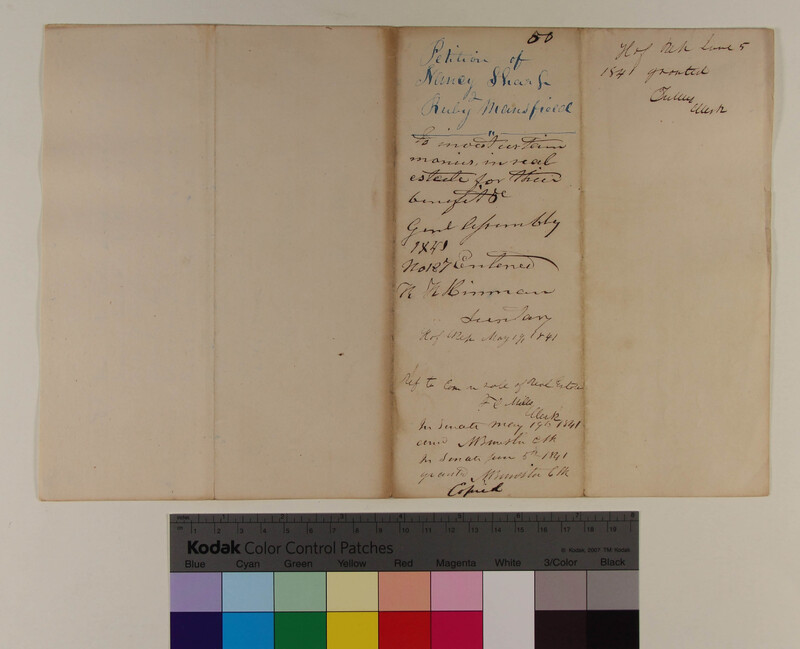 50
Petition of
Nancy Sharp
&
Ruby Mansfield
To invest certain
monies in real
estate for their
benefit &c
Genl Assembly
1841
No 127 Entered
R R Hinman
Secretary
H of Rep May 19, 1841
Ref to Com on sale of Real Estate
Mills
Clerk
In Senate May 19th 1841
Clk
In Senate June 5th 1841
granted Clk
Copied
H of Rep June 5
1841 granted
Clerk
Kodak Color Control Patches
© Kodak, 2007 TM: Kodak
Inches 1 2 3 4 5 6 7 8
cm 1 2 3 4 5 6 7 8 9 10 11 12 13 14 15 16 17 18 19
Blue Cyan Green Yellow Red Magenta White 3/Color Black